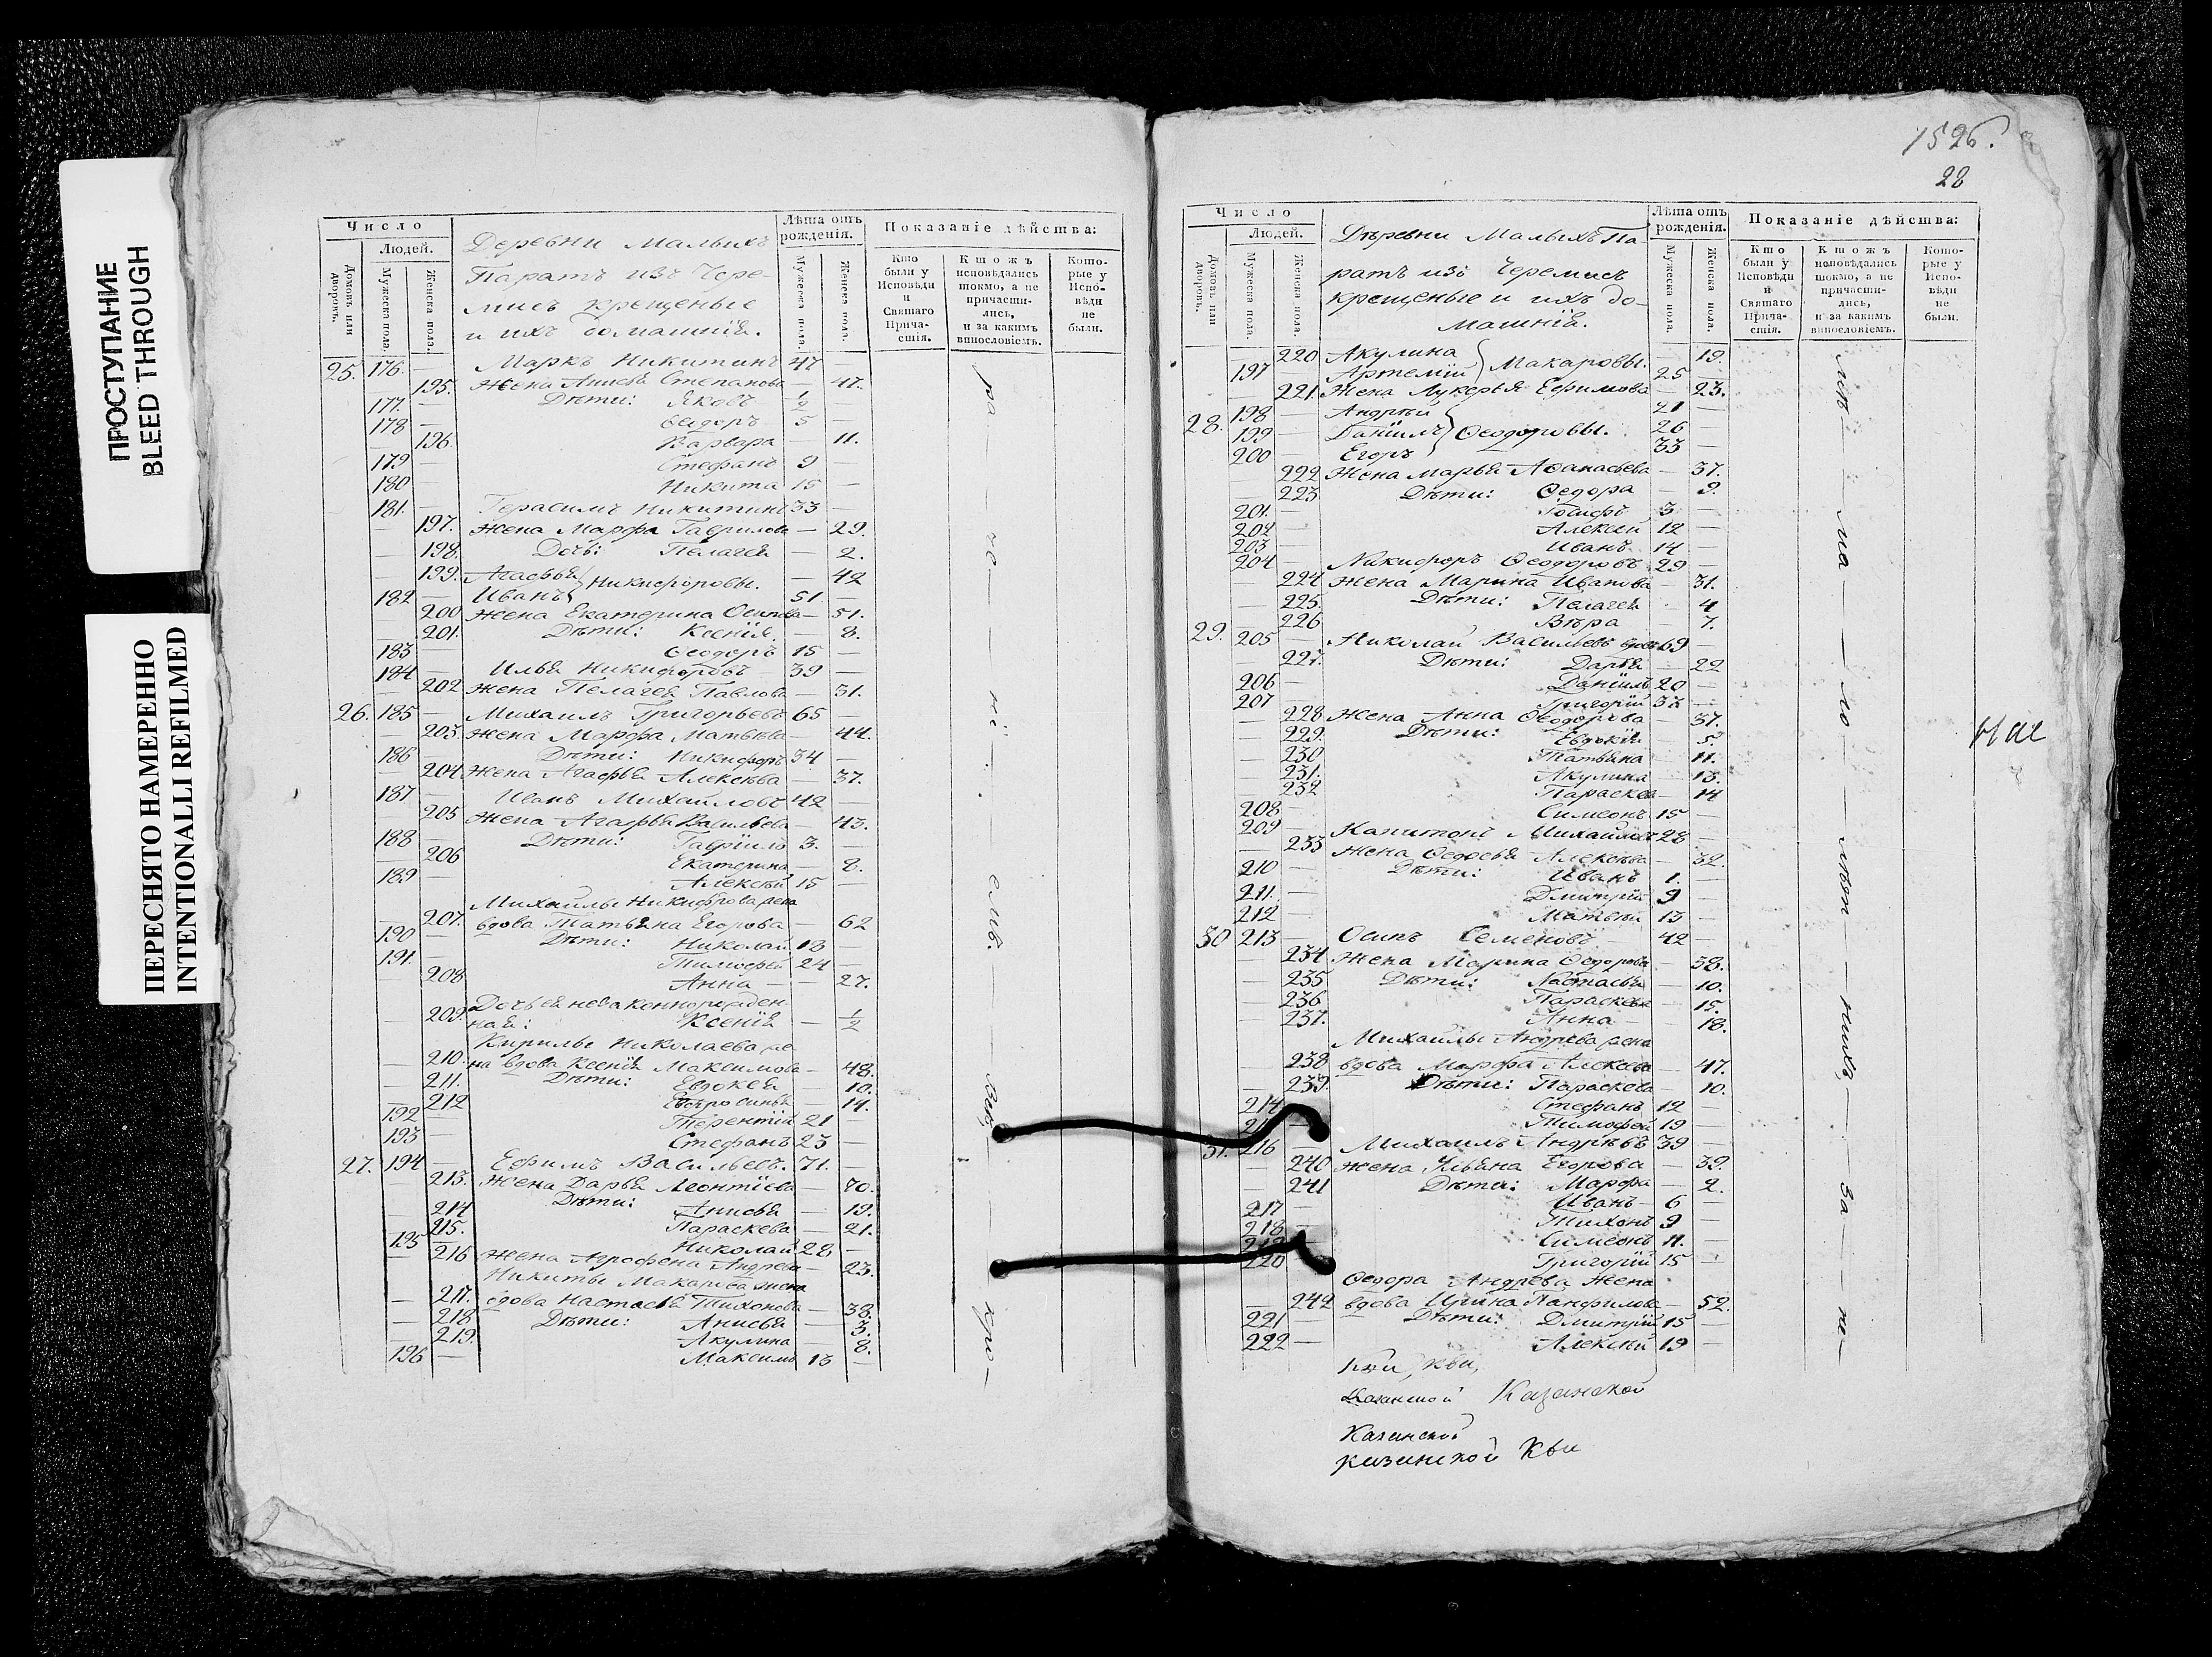 ПРОСТУПАНИЕ
BLEED THROUGH
ПЕРЕСНЯТО НАМЕРЕННО
INTENTIONALLI REFILMED
Число
Людей.
Домовъ или дворовъ.
Мужеска пола.
Женска пола.
Деревни Малыхъ
Паратъ изъ Чере-
мисъ крещеные
и ихъ домашнія.
Лѣта отъ рожденія.
Мужеска пола.
Женска пола.
Показаніе дѣйства:
Кто были у Исповѣди и Святаго Прича-стія.
Ктожъ исповѣдались токмо, а не причасти-лись, и за какимъ винословіемъ.
Кото-рые у Испо-вѣди не были.
25. 176. — Маркъ Никитинъ 47 —
195. Жена Анисья Степанова — 47.
177. — Дѣти: Яковъ 1/2
178 — Ѳедоръ 5 —
196. Варвара — 11.
179 — Стефанъ 9 —
180 — Никита 15 —
181. — Герасимъ Никитинъ 33 —
197. Жена Марфа Гаврилова — 29.
— 198. Дочь: Пелагея — 2.
— 199. Агафья } Никифоровы. — 42
182 — Иванъ } 51. —
— 200 Жена Екатерина Осипова — 51.
— 201. Дѣти: Ксенія. — 8.
183 — Ѳеодоръ 15 —
184 — Илья Никифоровъ 39 —
— 202 Жена Пелагея Павлова — 31.
26. 185 — Михаилъ Григорьевъ 65 —
— 203. Жена Марфа Матвѣева — 44.
186 — Дѣти: Никифоръ 34 —
— 204. Жена Агафья Алексѣева — 37.
187 — Иванъ Михайловъ 42 —
— 205 Жена Агафья Васильева — 43.
188 — Дѣти: Гавріилъ 3. —
— 206 Екатерина — 8.
189 — Алексѣй 15 —
Михайлы Никифорова жена
— 207. вдова Татьяна Егорова — 62
190 — Дѣти: Николай 18 —
191. — Тимофей 24 —
— 208 Анна — 27.
— 209. Дочь ея незаконнорожден-
ная: Ксенія — 1/2
Кирилы Николаева же-
— 210. на вдова Ксенія Максимова — 48.
— 211. Дѣти: Евдокея — 10.
— 212 — 14.
192 — Терентій 21 —
193 — Стефанъ 23 —
27. 194 — Ефимъ Васильевъ. 71. —
— 213. Жена Дарья Леонтіева — 70.
— 214 Дѣти: Анисья — 19.
— 215. Параскева — 21.
195 — Николай 28 —
— 216 Жена Агрофена Андреева — 23.
Никиты Макарова жена
— 217. вдова Настасья Тихонова — 38.
— 218 Дѣти: Анисья — 3.
— 219. Акулина — 8.
196 — Максимъ 13 —
1526.
28
Число
Людей.
Домовъ или дворовъ.
Мужеска пола.
Женска пола.
Деревни Малыхъ Па-
ратъ изъ Черемисъ
крещеные и ихъ до-
машнія.
Лѣта отъ рожденія.
Мужеска пола.
Женска пола.
Показаніе дѣйства:
Кто были у Исповѣди и Святаго Прича-стія.
Ктожъ исповѣдались токмо, а не причасти-лись, и за какимъ винословіемъ.
Кото-рые у Испо-вѣди не были.
220 Акулина } Макаровы. — 19.
197 Артемій } 25 —
— 221. Жена Лукерья Ефимова — 23.
28. 198 — Андрей } 21 —
199 — Даніилъ } Ѳеодоровы. 26 —
200 — Егоръ } 33 —
— 222 Жена Марья Аѳанасьева — 37.
— 223 Дѣти: Ѳедора — 9.
201. — Іосифъ 3 —
202 — Алексѣй 12 —
203 — Иванъ 14 —
204 — Никифоръ Ѳеодоровъ 29 —
— 224 Жена Марина Иванова — 31.
— 225. Дѣти: Пелагея — 4
— 226 Вѣра — 7.
29. 205 — Николай Васильевъ вдовъ 69 —
— 227. Дѣти: Дарья — 22
206 — Даніилъ 20 —
207 — Григорій 37 —
— 228 Жена Анна Ѳеодорова — 37.
— 229. Дѣти: Евдокія — 5.
— 230 Татьяна — 11.
— 231. Акулина — 13.
— 232 Параскева — 14
208 — Симеонъ 15 —
209 — Капитонъ Михайловъ 28 —
— 233 Жена Ѳедосья Алексѣева — 32.
210 — Дѣти: Иванъ 1. —
211. — Дмитрій 9 —
212 — Матвѣй 13 —
30 213 — Осипъ Семеновъ 42 —
— 234 Жена Марина Ѳедорова — 38.
— 235 Дѣти: Настасья — 10.
— 236 Параскева — 15.
— 237. Анна — 18.
Михайлы Андреева жена
— 238 вдова Марфа Алексѣева — 47.
— 239. Дѣти: Параскева — 10.
214 Стефанъ 12 —
Тимофей 19 —
31. 216 Михаилъ Андрѣевъ 39 —
— 240 Жена Ульяна Егорова — 39.
— 241 Дѣти: Марфа — 2.
217 — Иванъ 6 —
218 — Тихонъ 9 —
219 Симеонъ 11. —
220 Григорій 15 —
Ѳедора Андреева жена
— 242 вдова Ирина Панфилова — 52.
221 — Дѣти: Дмитрій 15 —
222 — Алексѣй 19 —
Казанской
Казанской
казанской